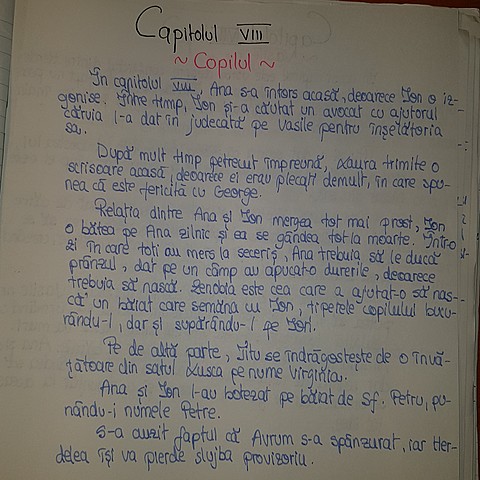 Capitolul VIII
~ Copilul ~
În capitolul VIII, Ana s-a întors acasă, deoarece Ion o iz-
gonise. Între timp, Ion și-a căutat un avocat cu ajutorul
căruia l-a dat în judecată pe Vasile pentru înșelătoria
sa.
După mult timp petrecut împreună, Laura trimite o
scrisoare acasă, deoarece ei erau plecați demult, în care spu-
nea că este fericită cu George.
Relația dintre Ana și Ion mergea tot mai prost, Ion
o bătea pe Ana zilnic și ea se gândea tot la moarte. Într-o
zi în care toți au mers la seceriș, Ana trebuia să le ducă
prânzul, dar pe un câmp au apucat-o durerile, deoarece
trebuia să nască. Zenobia este cea care a ajutat-o să nas-
că un băiat care semăna cu Ion, țipetele copilului bucu-
rându-l, dar și supărându-l pe Ion.
Pe de altă parte, Titu se îndrăgostește de o învă-
țătoare din satul Lușca pe nume Virginia.
Ana și Ion l-au botezat pe băiat de Sf. Petru, pu-
nându-i numele Petre.
S-a auzit faptul că Avrum s-a spânzurat, iar Her-
delea își va pierde slujba provizoriu.